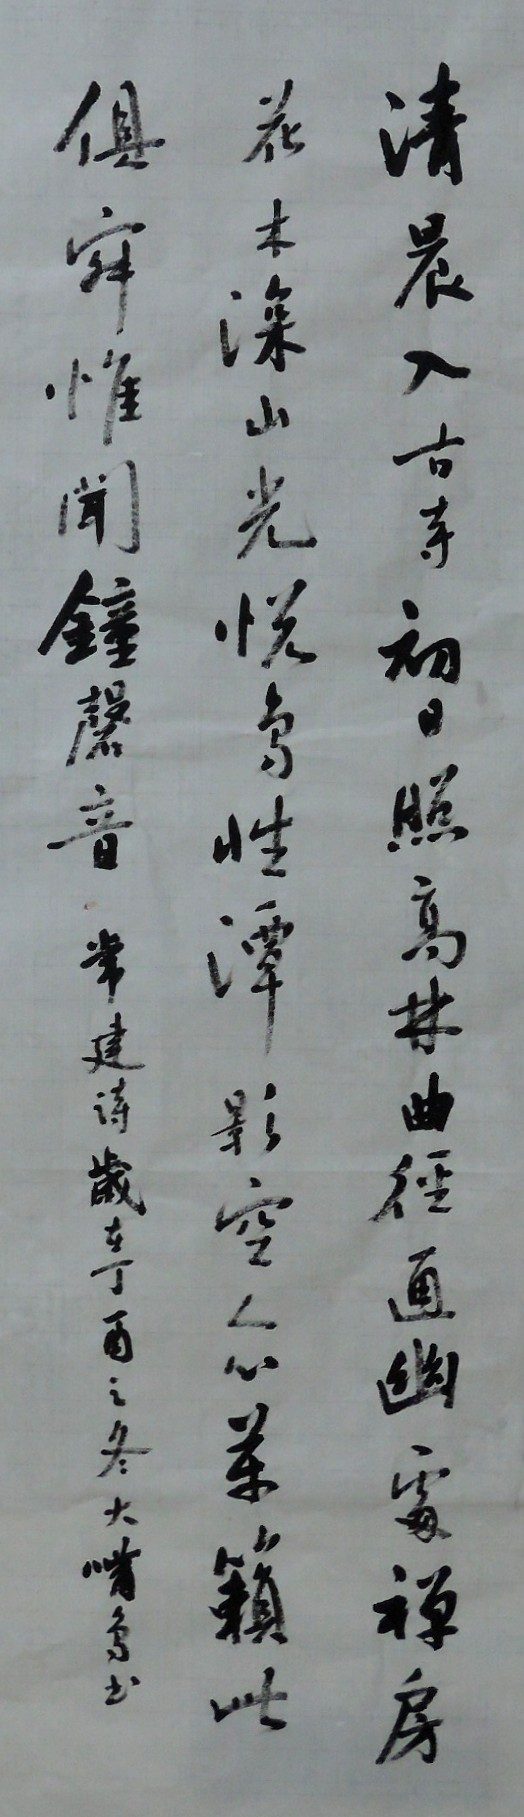 清晨入古寺初日照高林曲径通幽處禅房
花木深山光悦鸟性潭影空人心万籁此
俱寂惟聞鐘磬音 常建诗歲在丁酉之冬大嘴鸟书